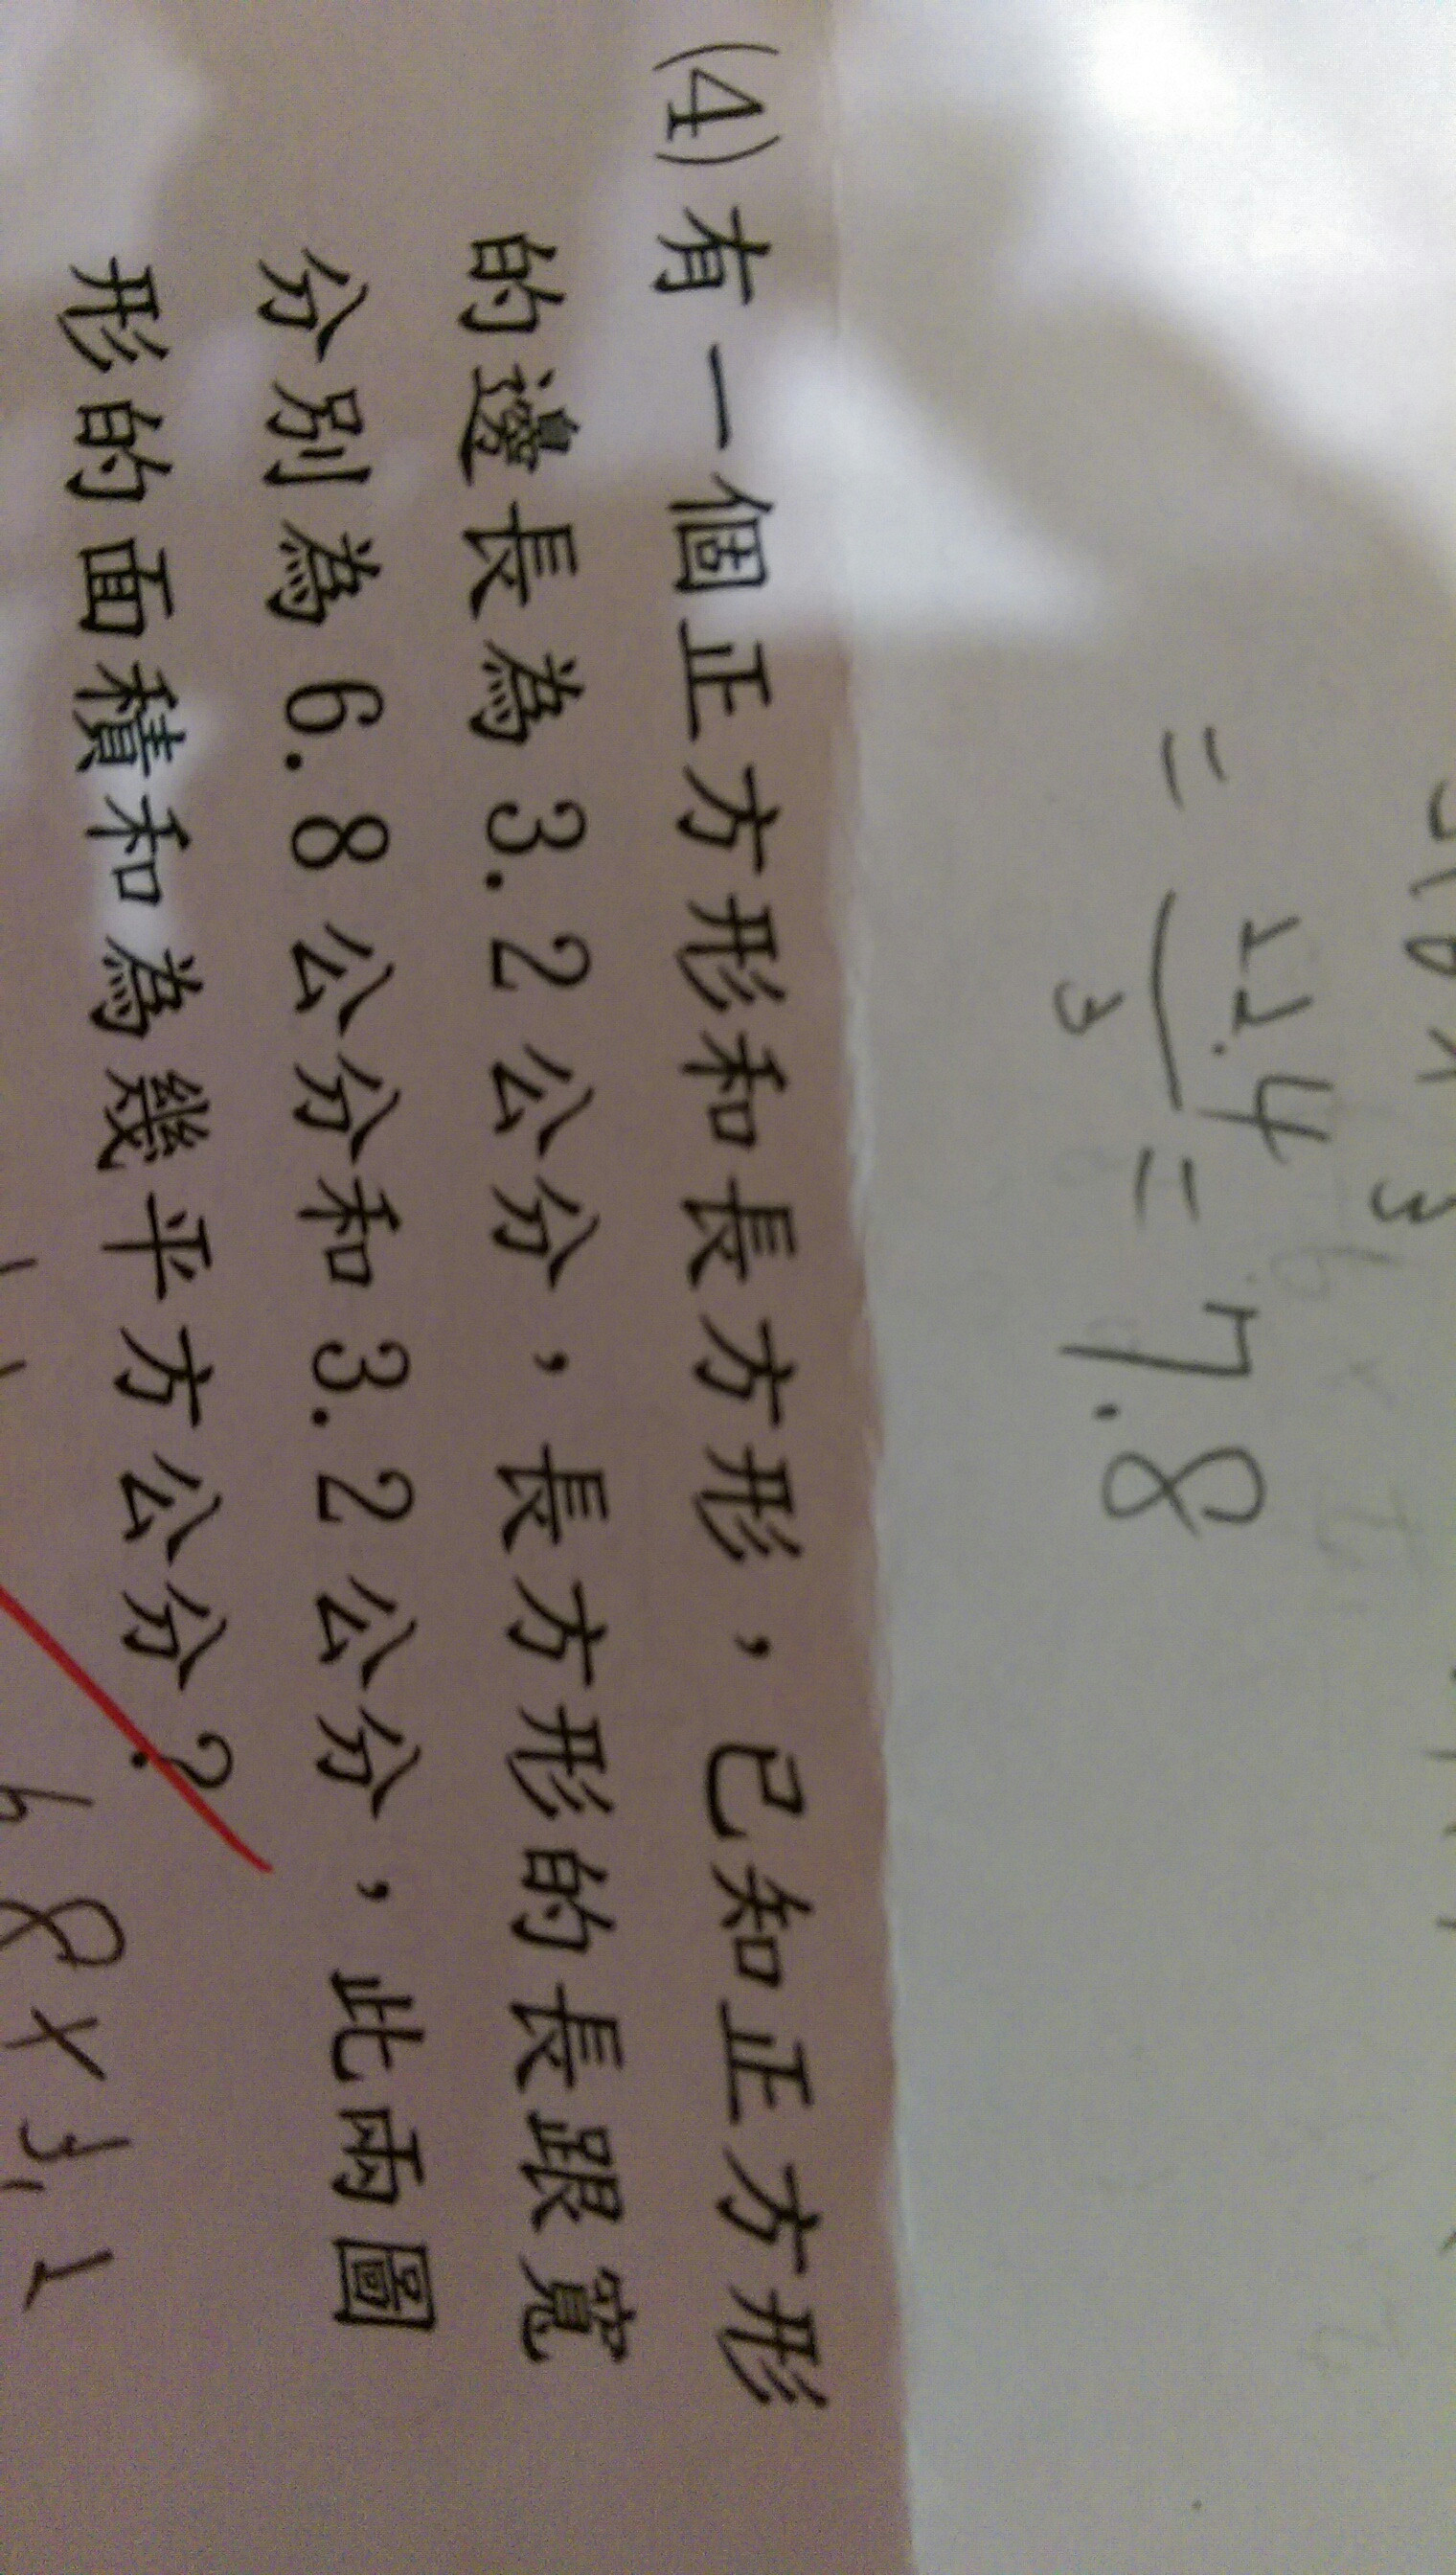 = 22.4
3
= 7.8
(4) 有一個正方形和長方形，已知正方形
的邊長為 3.2 公分，長方形的長跟寬
分別為 6.8 公分和 3.2 公分，此兩圖
形的面積和為幾平方公分？